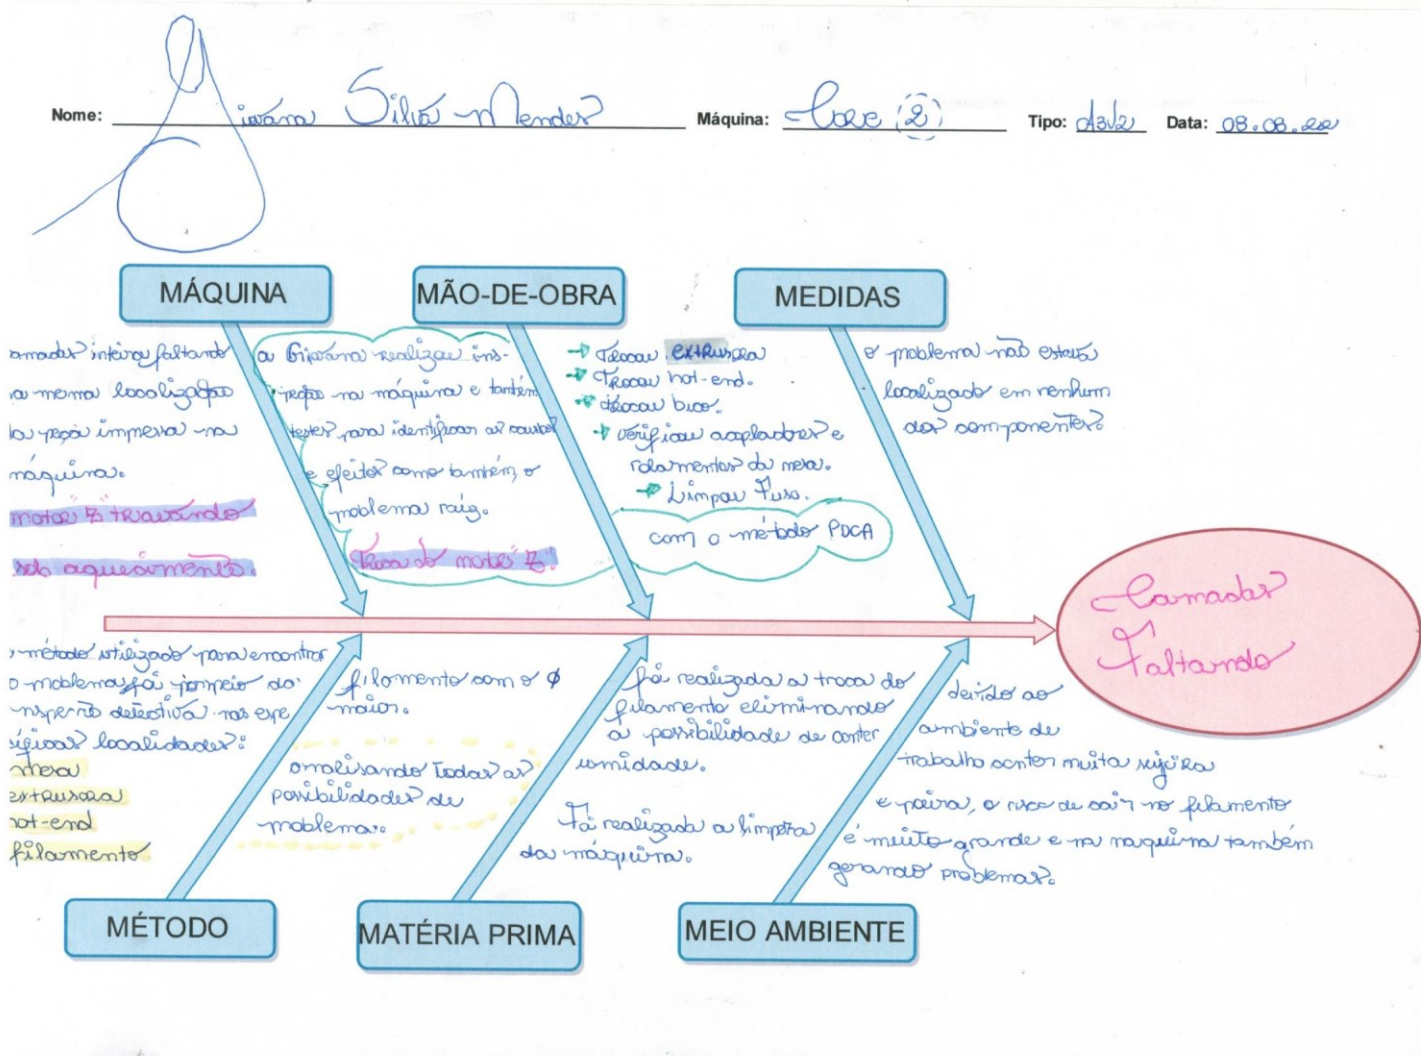 Nome: Giovana Silva Mendes Máquina: Core 2 Tipo: A3V2 Data: 08.08.202
MÁQUINA
amadas inteira faltando
na mesma localização
da peça impressa na
máquina.
motor "Z" travando
sob aquecimento.
MÃO-DE-OBRA
a Giovana realizou ins-
peção na máquina e também
testes para identificar as causas
e efeitos como também, o
problema raiz.
Troca do motor "Z".
→ Trocou extrusora
→ Trocou hot-end.
→ trocou bico.
→ verificou acopladores e
rolamentos da mesa.
→ Limpou Fuso.
com o método PDCA
MEDIDAS
o problema não estava
localizado em nenhum
dos componentes.
Camadas
Faltando
método utilizado para encontrar
o problema foi por meio da
inspeção detectiva nas espe
cíficas localidades:
mesa
extrusora
hot-end
filamento
MÉTODO
filamento com o Ø
maior.
analisando todas as
possibilidades de
problema.
MATÉRIA PRIMA
foi realizada a troca do
filamento eliminando
a possibilidade de conter
umidade.
Foi realizada a limpeza
da máquina.
MEIO AMBIENTE
devido ao
ambiente de
trabalho conter muita sujeira
e poeira, o risco de cair no filamento
é muito grande e na maquina também
gerando problemas.